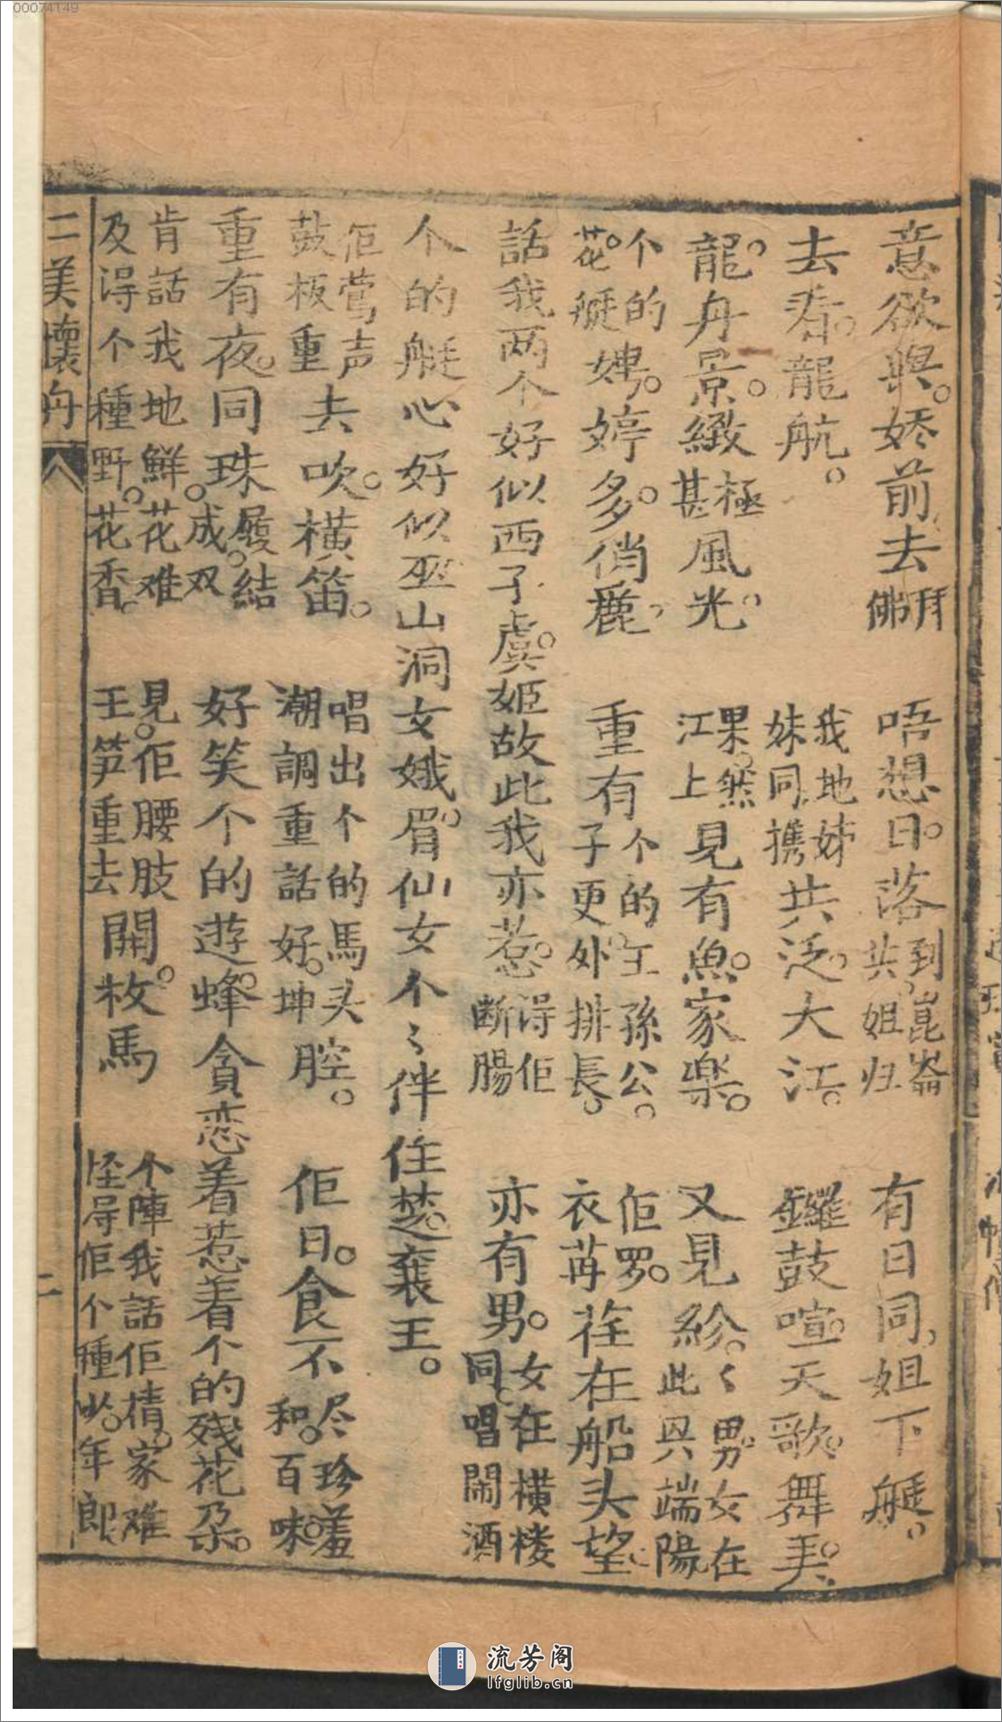 00074149
意欲㒷。娇前去拜佛 唔想日。落到崑崙共姐归 有日同姐下艇。
去看龍航。 我地姊妹同携共泛大江。 鑼鼓喧天歌舞弄。
龍舟景緻極甚風光 果然江上見有魚家樂。 又見紛〻男女在此共端陽
个的花艇娉婷多俏麗 重有个的王孫公子更外排長。 佢罗衣苒荏在船头望
話我两个好似西子虞姬故此我亦惹得佢断腸 亦有男女在横楼同唱鬧酒
个的艇心好似巫山洞女娥眉仙女个〻伴住楚襄王。
佢莺声鼓板重去吹横笛。 唱出个的馬头潮調重話好坤腔。 佢日食不尽珍羞和百味
重有夜同珠履結成双 好笑个的遊蜂貪恋着惹着个的殘花朵
肯話我地鮮花难及得个種野花香 見佢腰肢王笋重去開牧馬 个陣我話佢情家难怪得佢个種少年郎
二美懷舟
二
流芳阁
lfglib.cn